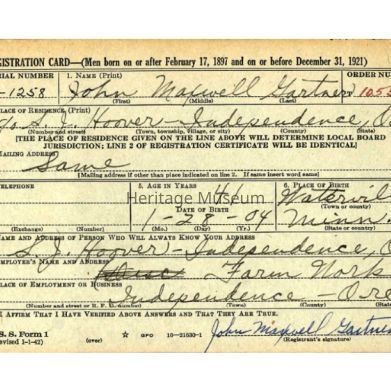 GISTRATION CARD—(Men born on or after February 17, 1897 and on or before December 31, 1921)
RIAL NUMBER 1. NAME (Print) ORDER NU
-1258 John Maxwell Gartner 1055
(First) (Middle) (Last)
LACE OF RESIDENCE (Print)
S. J. Hoover - Independence,
(Number and street) (Town, township, village, or city) (County)
[THE PLACE OF RESIDENCE GIVEN ON THE LINE ABOVE WILL DETERMINE LOCAL BOARD
JURISDICTION; LINE 2 OF REGISTRATION CERTIFICATE WILL BE IDENTICAL]
AILING ADDRESS
Same
[Mailing address if other than place indicated on line 2. If same insert word same]
ELEPHONE 5. AGE IN YEARS 6. PLACE OF BIRTH
Heritage Museum
DATE OF BIRTH (Town or county)
1-28-04 Minn.
(Exchange) (Number) (Mo.) (Day) (Yr.) (State or country)
AME AND ADDRESS OF PERSON WHO WILL ALWAYS KNOW YOUR ADDRESS
S. J. Hoover - Independence, O
MPLOYER'S NAME AND ADDRESS
Farm Work
LACE OF EMPLOYMENT OR BUSINESS
Independence - Ore
(Number and street or R. F. D. number) (Town) (County) (State)
I AFFIRM THAT I HAVE VERIFIED ABOVE ANSWERS AND THAT THEY ARE TRUE.
S. S. Form 1
evised 1-1-42) (over) GPO 16-21630-1 John Maxwell Gartner
(Registrant's signature)